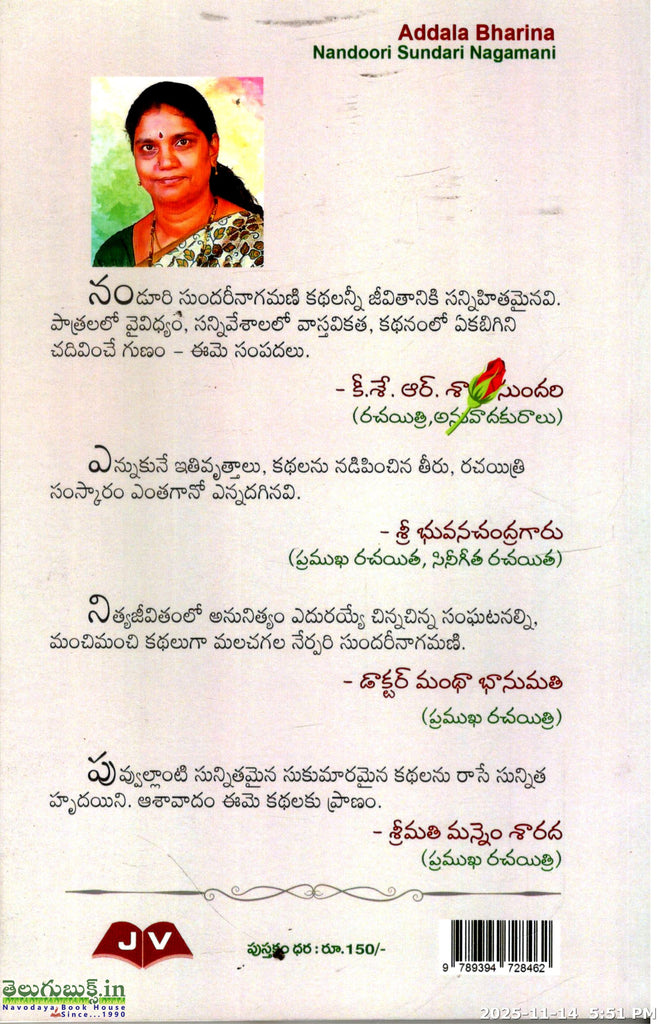 Addala Bharina
Nandoori Sundari Nagamani
నండూరి సుందరీనాగమణి కథలన్నీ జీవితానికి సన్నిహితమైనవి.
పాత్రలలో వైవిధ్యం, సన్నివేశాలలో వాస్తవికత, కథనంలో ఏకబిగిని
చదివించే గుణం – ఈమె సంపదలు.
- కీ.శే. ఆర్. శా సుందరి
(రచయిత్రి,అనువాదకురాలు)
ఎన్నుకునే ఇతివృత్తాలు, కథలను నడిపించిన తీరు, రచయిత్రి
సంస్కారం ఎంతగానో ఎన్నదగినవి.
- శ్రీ భువనచంద్రగారు
(ప్రముఖ రచయిత, సినీగీత రచయిత)
నిత్యజీవితంలో అనునిత్యం ఎదురయ్యే చిన్నచిన్న సంఘటనల్ని,
మంచిమంచి కథలుగా మలచగల నేర్పరి సుందరీనాగమణి.
- డాక్టర్ మంథా భానుమతి
(ప్రముఖ రచయిత్రి)
పువ్వుల్లాంటి సున్నితమైన సుకుమారమైన కథలను రాసే సున్నిత
హృదయిని. ఆశావాదం ఈమె కథలకు ప్రాణం.
- శ్రీమతి మన్నెం శారద
(ప్రముఖ రచయిత్రి)
JV
పుస్తకం ధర : రూ.150/-
9 789394 728462
తెలుగుబుక్స్.in
Navodaya Book House
Since...1990
2025-11-14 5:51 PM